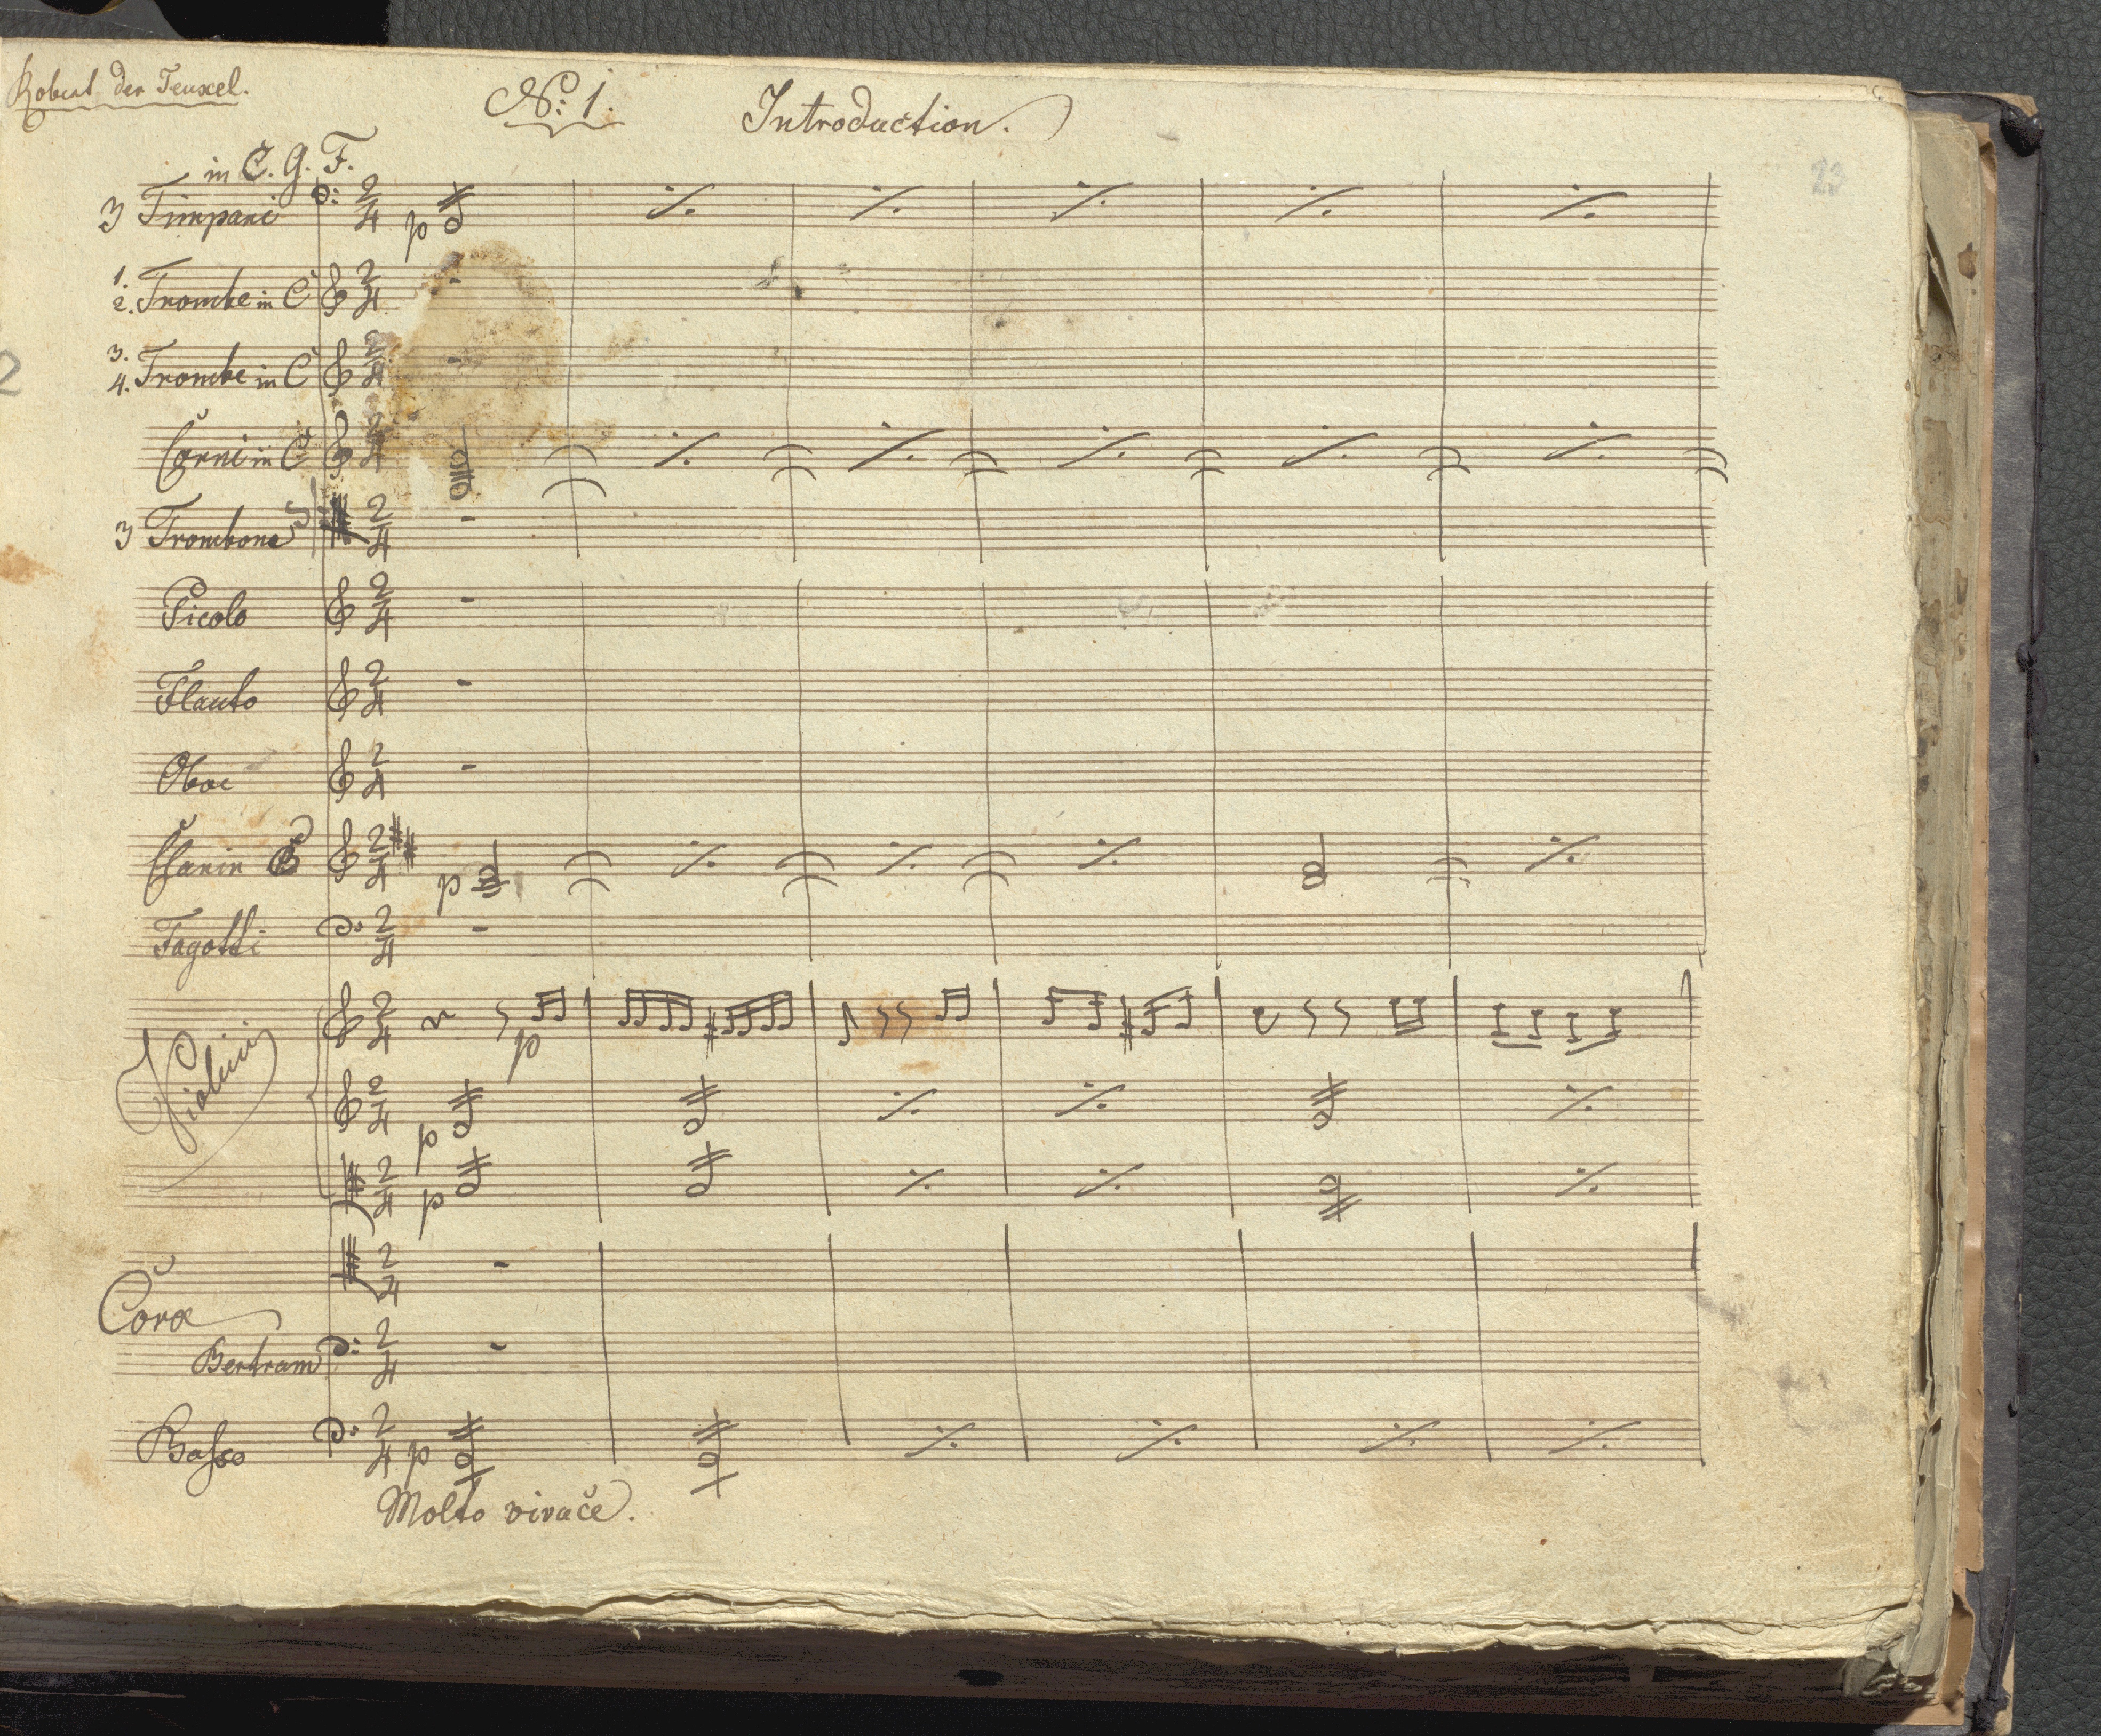 Robert der Teuxel.
No: 1. Introduction.
23
in C. G. F.
3 Timpani
p
1.
2. Trombe in C
3.
4. Trombe in C
2
Corni in C
3 Trombone
Picolo
Flauto
Oboe
Clarin B
p
Fagotti
p
Violini
p
p
Coro
Bertram
Basso
p
Molto vivače.